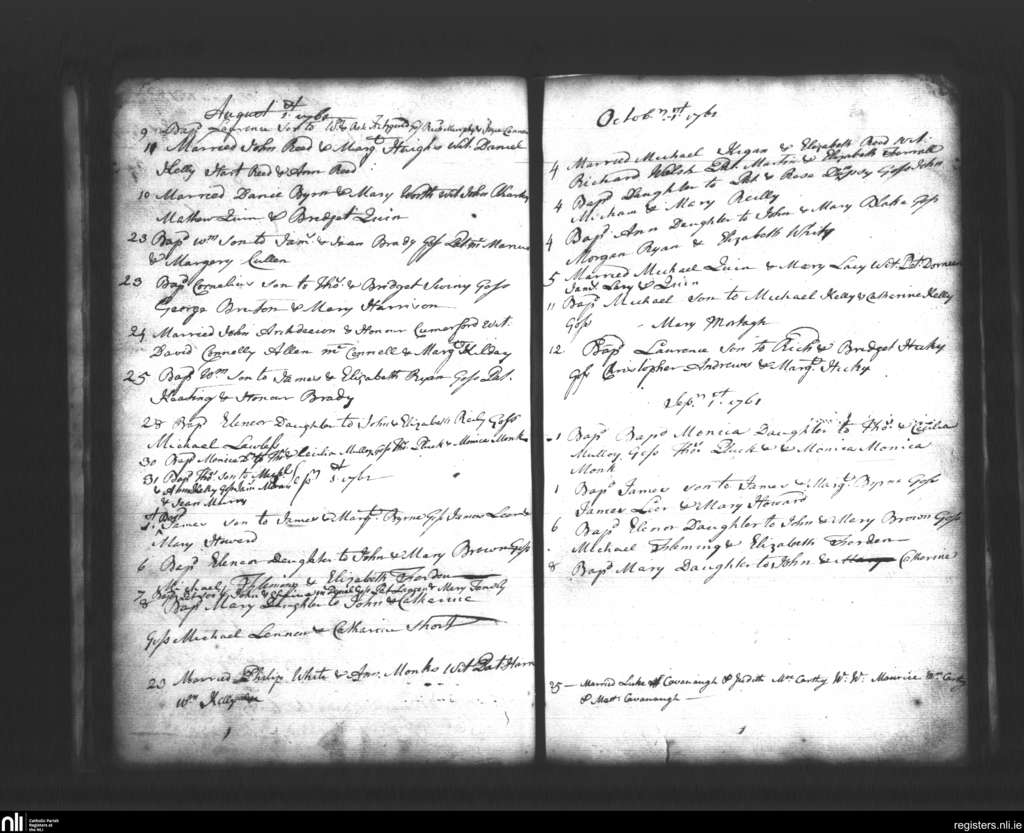 August 1st 1761
9 Bapd Laurence Son to Wm & Fitzgerald Murphy &
10 Married John Reed & Margt Hughs Wit. Daniel
Kelly Hart Reed & Ann Reed
10 Married Daniel Byrn & Mary Worth wit John
Mathew Quin & Bridget Quin
23 Bapd Wm Son to Jams & Jean Brady Goss Pat
& Margery Cullen
23 Bapd Cornelius Son to Thos & Bridget Goss
George Briton & Mary Harrison
24 Married John Archdeacon & Honour Cumerford Wit.
David Connelly Allen Mc Connell & Margt Kilday
25 Bapd Wm Son to James & Elizabeth Ryan Goss Pat.
Keating & Honour Brady
28 Bapd Elenor Daughter to John & Elizabeth Goss
Michael Lawless
30 Bapd Monica D to Thos & Cecilia Mulloy, Goss Thos Pluck & Monica Monks
31 Bapd Thos Son to
Sepr 1st 1761
& Jean
1st Bapd
James Son to James & Margt Byrne Goss James Leer &
Mary Howard
6 Bapd Elenor Daughter to John & Mary Brown Goss
Michael Fleming & Elizabeth
7
8 Bapd Mary Daughter to John & Catherine
Goss Michael Lennon & Catharine Short
23 Married Philip White & Ann Monks Wit Pat
Wm Kelly
1
Octobr 1st 1761
4 Married Michael Kegan & Elizabeth Reed Wit.
Richard Walsh Pat. Martin & Elizabeth
4 Bapd Daughter to Pat & Rose Goss John
& Mary Reilly
4 Bapd Ann Daughter to John & Mary Blake Goss
Morgan Ryan & Elizabeth White
5 Married Michael Quin & Mary Lacy Wit. Pat.
James Lacy & Quin
11 Bapd Michael Son to Michael Kelly & Catherine Kelly
Goss - Mary Mortagh
12 Bapd Laurence Son to Richd & Bridget Hicky
Goss Christopher Andrews & Margt Hicky
Sepr 1st 1761
1 Bapd Bapd Monica Daughter to Thos & Cecilia
Mulloy Goss Thos Pluck & Monica Monica
Monk
1 Bapd James Son to James & Margt Byrne Goss
James Lier & Mary Howard
6 Bapd Elenor Daughter to John & Mary Brown Goss
Michael Fleming & Elizabeth
8 Bapd Mary Daughter to John & Mary Catherine
25 - Married Luke Cavanaugh & Judith McCarthy Wt. Wt. Maurice McCarthy
& Matt: Cavanaugh -
1
nli
Catholic Parish
Registers at
the NLI
registers.nli.ie